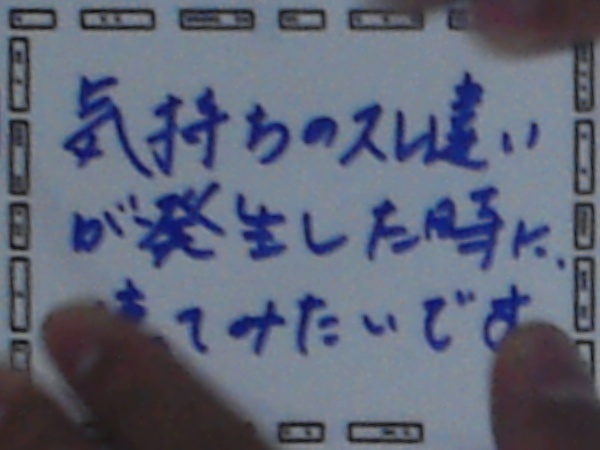 気持ちのスレ違い
が発生した時に、
てみたいです